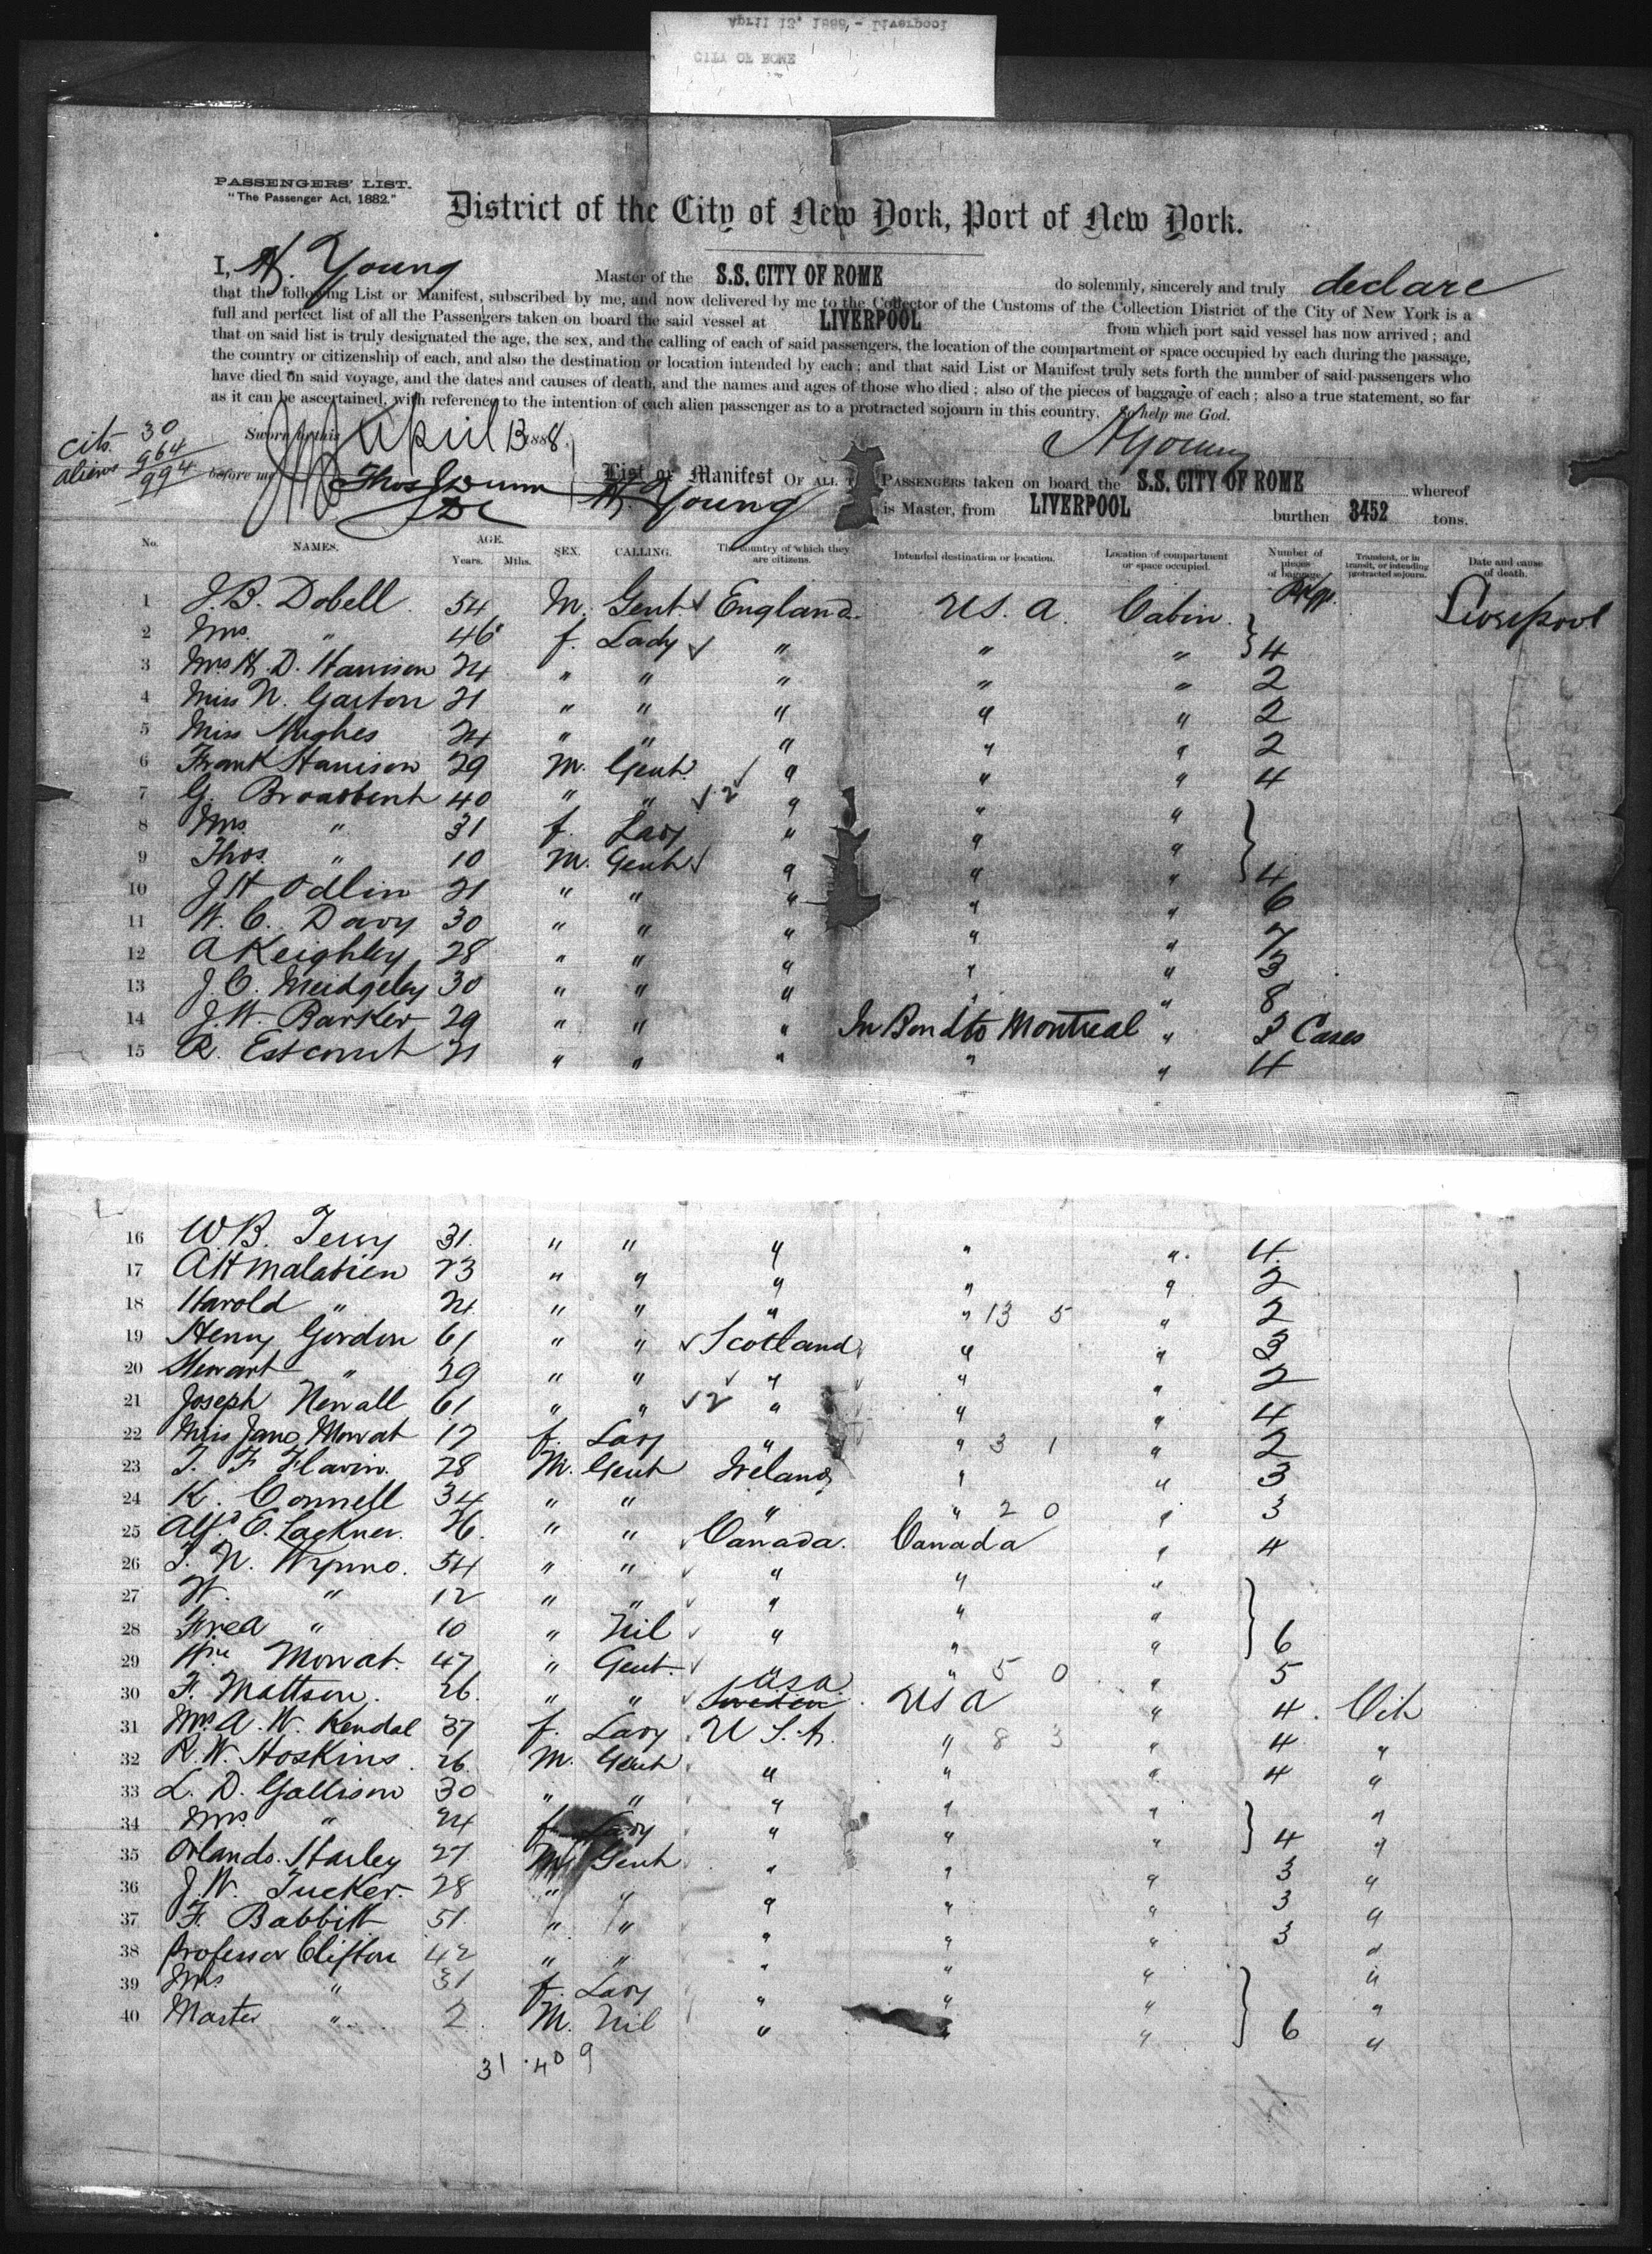 April 13, 1888, - Liverpool
CITY OF ROME
PASSENGERS' LIST.
"The Passenger Act, 1882."
District of the City of New York, Port of New York.
I, H. Young Master of the S.S. CITY OF ROME do solemnly, sincerely and truly declare
that the following List or Manifest, subscribed by me, and now delivered by me to the Collector of the Customs of the Collection District of the City of New York is a
full and perfect list of all the Passengers taken on board the said vessel at LIVERPOOL from which port said vessel has now arrived; and
that on said list is truly designated the age, the sex, and the calling of each of said passengers, the location of the compartment or space occupied by each during the passage,
the country or citizenship of each, and also the destination or location intended by each; and that said List or Manifest truly sets forth the number of said passengers who
have died on said voyage, and the dates and causes of death, and the names and ages of those who died; also of the pieces of baggage of each; also a true statement, so far
as it can be ascertained, with reference to the intention of each alien passenger as to a protracted sojourn in this country. So help me God.
cits 30
aliens 964
994
Sworn to this April 13 1888
H Young
before me Thos
List or Manifest OF ALL PASSENGERS taken on board the S.S. CITY OF ROME whereof
H. Young is Master, from LIVERPOOL burthen 3452 tons.
No. NAMES. AGE. Years. Mths. SEX. CALLING. The country of which they are citizens. Intended destination or location. Location of compartment or space occupied. Number of pieces of baggage. Transient, or in transit, or intending protracted sojourn. Date and cause of death.
1 J. B. Dobell 54 M. Gent England U.S.A. Cabin Pkgs. Liverpool
2 Mrs. " 46 f. Lady " " " 4
3 Mrs H. D. Harrison 24 " " " " " 2
4 Miss N. Garton 21 " " " " " 2
5 Miss Hughes 24 " " " " " 2
6 Frank Harrison 29 M. Gent " " " 4
7 G. Broadbent 40 " " 2 " " "
8 Mrs. " 31 f. Lady " " "
9 Thos. " 10 M. Gent " " " 4
10 J H Odlin 21 " " " " " 6
11 W. C. Davy 30 " " " " " 7
12 A Keighley 28 " " " " " 3
13 J. C. Meidgeley 30 " " " " " 8
14 J. W. Barker 29 " " " In Bond to Montreal " 3 Cases
15 R. Estcourt 21 " " " " " 4
16 W B. Terry 31 " " " " " 4
17 A H Malabien 73 " " " " " 2
18 Harold " 24 " " " " 13 5 " 2
19 Henry Gordon 61 " " Scotland " " 3
20 Stewart " 29 " " " " " 2
21 Joseph Newall 61 " " 2 " " " 4
22 Miss Jane Mowat 17 f. Lady " " 3 1 " 2
23 T. F Flavin 28 M. Gent Ireland " " 3
24 K. Connell 34 " " " " 2 0 " 3
25 Alfd E. Lackner 26 " " Canada Canada " 4
26 T. N. Wynno. 54 " " " " "
27 W. " 12 " " " " "
28 Fred " 10 " Nil " " " 6
29 Mowat. 47 " Gent. " " 5 0 " 5
30 F. Mattson. 26 " " Sweden U.S.A. U S A " 4 Cit
31 Mrs A. W. Kendal 37 f. Lady U S. A. " 8 3 " 4 "
32 R. W. Hoskins 26 M. Gent " " " 4 "
33 L. D. Gallison 30 " " " " " "
34 Mrs " 24 f Lady " " " 4 "
35 Orlando Harley 27 M Gent " " " 3 "
36 J. W. Tucker. 28 " " " " " 3 "
37 F. Babbitt 51 " " " " " 3 "
38 Professor Clifton 42 " " " " " "
39 Mrs " 31 f. Lady " " " "
40 Master " 2 M. Nil " " " 6 "
31 40 9